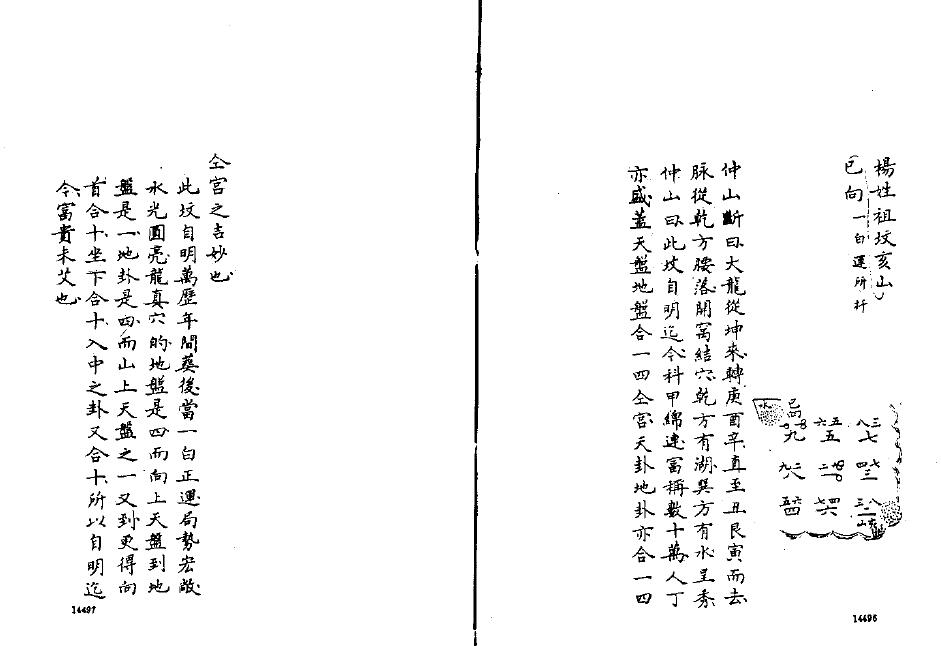 楊姓祖坟亥山
巳向一白運所扦
巳向
水
三 八七
五 六五
九
七 四三
二
九八
八 三二
四六
五四
山
仲山斷曰大龍從坤來轉庚酉辛直至丑艮寅而去
脉從乾方腰落開窩結穴乾方有湖巽方有水呈秀
仲山曰此坟自明迄今科甲綿連富稱數十萬人丁
亦盛蓋天盤地盤合一四仝宮天卦地卦亦合一四
14496
仝宮之吉妙也
此坟自明萬歷年間葬後當一白正運局勢宏敞
水光圓亮龍真穴的地盤是四而向上天盤到地
盤是一地卦是四而山上天盤之一又到更得向
首合十坐下合十入中之卦又合十所以自明迄
今富貴未艾也
14497